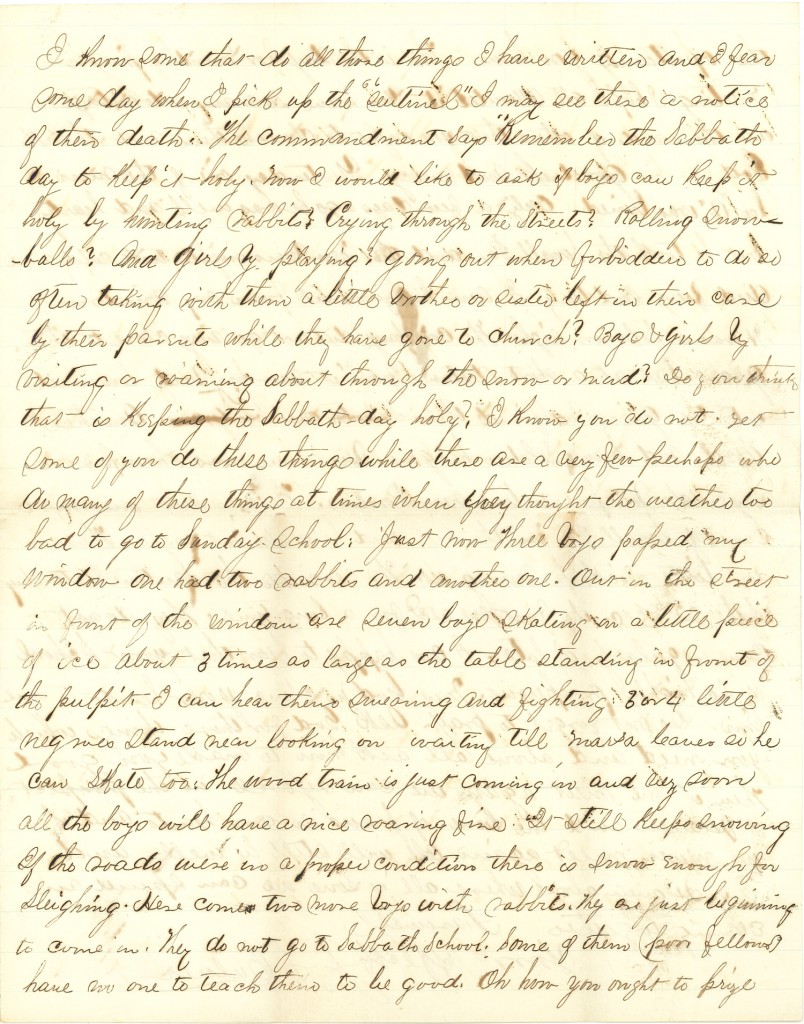 I know some that do all those things I have written and I fear
some day when I pick up the "Sentinel" I may see there a notice
of their death. The commandment says "Remember the Sabbath
day to keep it holy. Now I would like to ask if boys can keep it
holy by hunting rabbits? Crying through the streets? Rolling snow-
-balls? And Girls by playing, going out when forbidden to do so
often taking with them a little brother or sister left in their care
by their parents while they have gone to church? Boys & Girls by
visiting or roaming about through the snow or mud? Do you think
that is keeping the Sabbath-day holy? I know you do not. yet
some of you do these things while there are a very few perhaps who
do many of these things at times when they thought the weather too
bad to go to Sunday School. Just now three boys passed my
window one had two rabbits and another one. Out in the street
in front of the window are seven boys skating on a little piece
of ice about 3 times as large as the table standing in front of
the pulpit. I can hear them swearing and fighting. 3 or 4 little
negroes stand near looking on waiting till marsa leaves so he
can skate too. The wood train is just coming in and very soon
all the boys will have a nice roaring fire. It still keeps snowing
If the roads were in a proper condition there is snow enough for
sleighing. Here comes two more boys with rabbits. They are just beginning
to come in. They do not go to Sabbath School. Some of them (poor fellows)
have no one to teach them to be good. Oh how you ought to prize